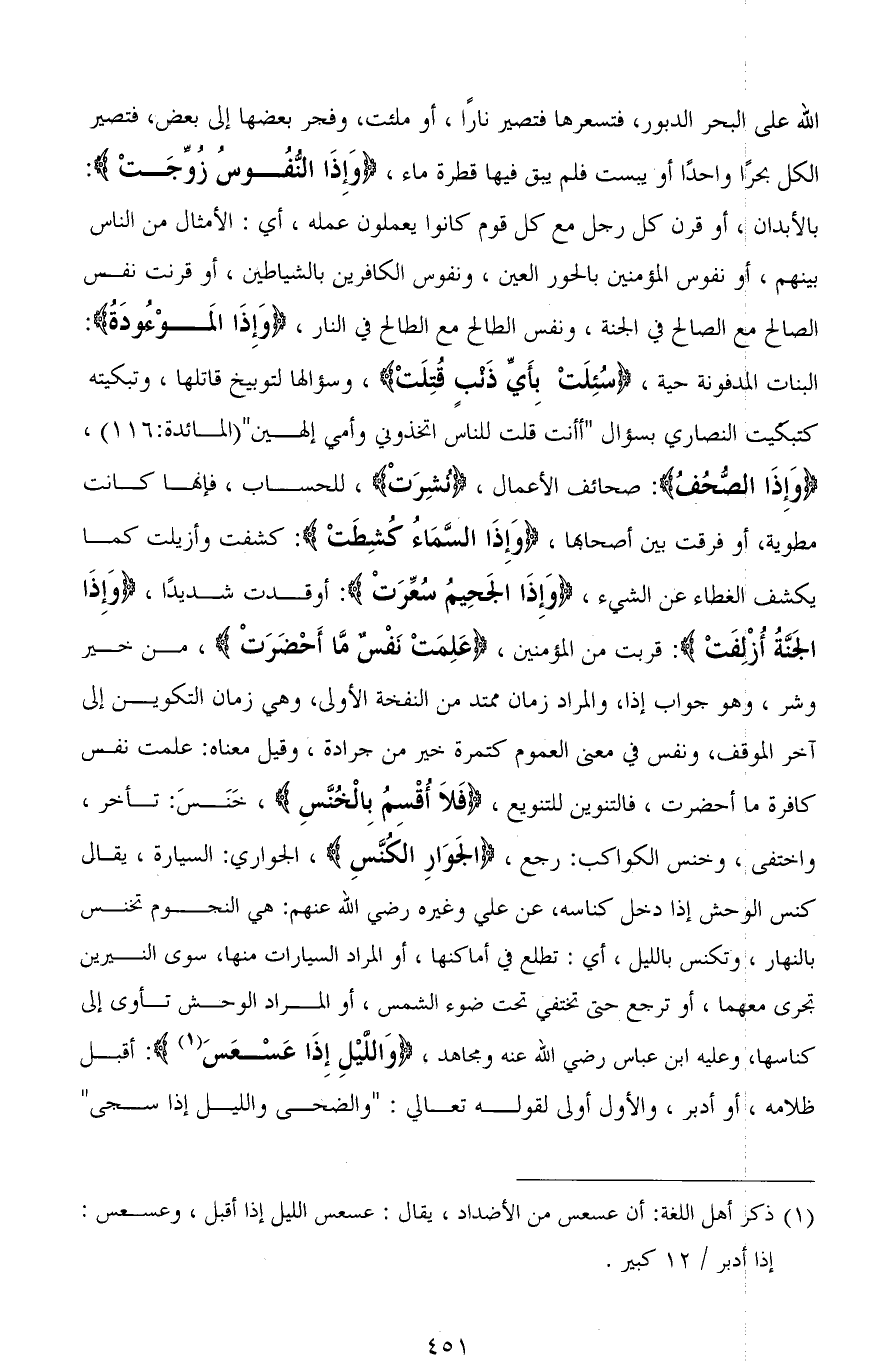 الله على البحر الدبور، فتسعرها فتصير نارًا ، أو ملئت، وفجر بعضها إلى بعض، فتصير
الكل بحرًا واحدًا أو يبست فلم يبق فيها قطرة ماء ، ﴿وَإِذَا النُّفُـــوسُ زُوِّجَـــتْ ﴾:
بالأبدان ، أو قرن كل رجل مع كل قوم كانوا يعملون عمله ، أي : الأمثال من الناس
بينهم ، أو نفوس المؤمنين بالحور العين ، ونفوس الكافرين بالشياطين ، أو قرنت نفـس
الصالح مع الصالح في الجنة ، ونفس الطالح مع الطالح في النار ، ﴿وَإِذَا الْمَـــوْءُودَةُ﴾:
البنات المدفونة حية ، ﴿سُئِلَتْ بِأَيِّ ذَنْبٍ قُتِلَتْ﴾ ، وسؤالها لتوبيخ قاتلها ، وتبكيته
كتبكيت النصاري بسؤال "أأنت قلت للناس اتخذوني وأمي إلهــين"(المـائدة:١١٦) ،
﴿وَإِذَا الصُّحُفُ﴾: صحائف الأعمال ، ﴿نُشِرَتْ﴾ ، للحســاب ، فإنهــا كــانت
مطوية، أو فرقت بين أصحابها ، ﴿وَإِذَا السَّمَاءُ كُشِطَتْ ﴾: كشفت وأزيلت كمــا
يكشف الغطاء عن الشيء ، ﴿وَإِذَا الْجَحِيمُ سُعِّرَتْ ﴾: أوقــدت شــديدًا ، ﴿وَإِذَا
الْجَنَّةُ أُزْلِفَتْ ﴾: قربت من المؤمنين ، ﴿عَلِمَتْ نَفْسٌ مَّا أَحْضَرَتْ ﴾ ، مــن خــير
وشر ، وهو جواب إذا، والمراد زمان ممتد من النفخة الأولى، وهي زمان التكويــن إلى
آخر الموقف، ونفس في معنى العموم كتمرة خير من جرادة ، وقيل معناه: علمت نفـس
كافرة ما أحضرت ، فالتنوين للتنويع ، ﴿فَلاَ أُقْسِمُ بِالْخُنَّسِ ﴾ ، خَنَــسَ: تــأخر ،
واختفى ، وخنس الكواكب: رجع ، ﴿الْجَوَارِ الْكُنَّسِ ﴾ ، الجواري: السيارة ، يقـال
كنس الوحش إذا دخل كناسه، عن علي وغيره رضي الله عنهم: هي النجــوم تخنــس
بالنهار ، وتكنس بالليل ، أي : تطلع في أماكنها ، أو المراد السيارات منها، سوى النــيرين
تجرى معهما ، أو ترجع حتى تختفي تحت ضوء الشمس ، أو المــراد الوحــش تــأوى إلى
كناسها، وعليه ابن عباس رضي الله عنه ومجاهد ، ﴿وَاللَّيْلِ إِذَا عَسْـعَسَ(١) ﴾: أقبــل
ظلامه ، أو أدبر ، والأول أولى لقولــه تعــالي : "والضحــى والليــل إذا ســجى"
(١) ذكر أهل اللغة: أن عسعس من الأضداد ، يقال : عسعس الليل إذا أقبل ، وعســعس :
إذا أدبر / ١٢ كبير .
٤٥١